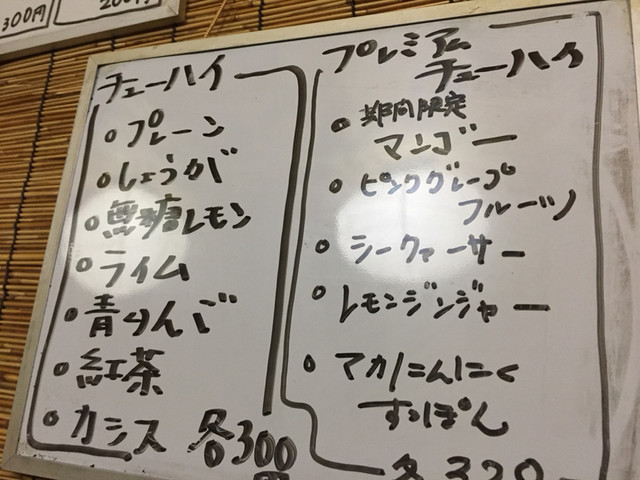 300円
200円
チューハイ
プレーン
しょうが
無糖レモン
ライム
青りんご
紅茶
カシス 各300円
プレミアム
チューハイ
期間限定
マンゴー
ピンクグレープ
フルーツ
シークァーサー
レモンジンジャー
マカ/にんにく
すっぽん
各320